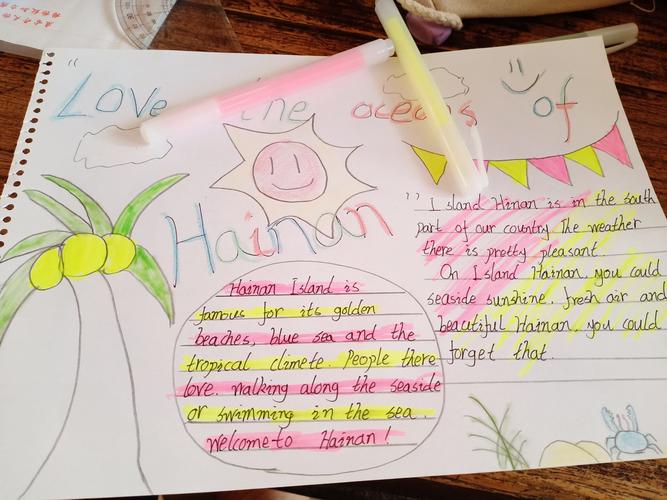 Love the oceans of
Hainan
Hainan Island is
famous for its golden
beaches, blue sea and the
tropical climete. People there
love. walking along the seaside
or swimming in the sea.
welcome to Hainan!
Island Hinan is in the south
part of our country The weather
there is pretty pleasant.
On Island Hainan, you could
seaside sunshine. fresh air and
beautiful Hainan. you could
forget that.